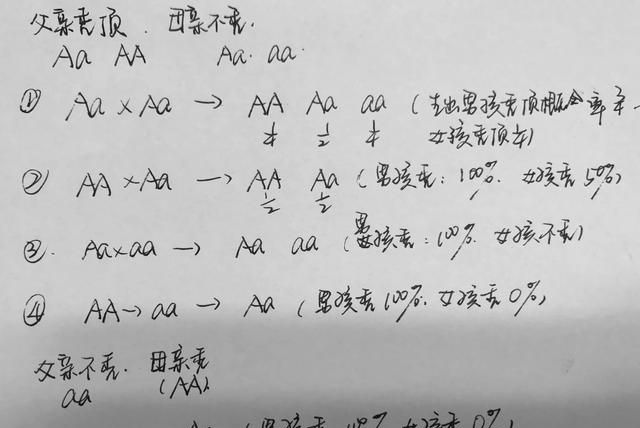 父亲秃顶. 母亲不秃.
Aa AA Aa. aa.
① Aa × Aa → AA Aa aa (生出男孩秃顶概率
1/4 1/2 1/4 女孩秃顶
② AA × Aa → AA Aa (男孩秃: 100%. 女孩秃 50%)
1/2 1/2
③. Aa × aa → Aa aa (男孩秃: 100%. 女孩不秃)
④ AA → aa → Aa (男孩秃 100%. 女孩秃 0%)
父亲不秃. 母亲秃
aa (AA)